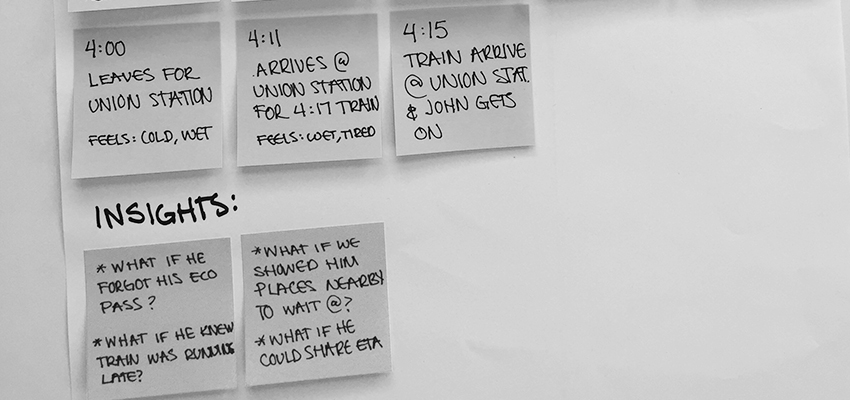 4:00
LEAVES FOR
UNION STATION
FEELS: COLD, WET
4:11
ARRIVES @
UNION STATION
FOR 4:17 TRAIN
FEELS: WET, TIRED
4:15
TRAIN ARRIVE
@ UNION STAT.
& JOHN GETS
ON
INSIGHTS:
* WHAT IF HE
FORGOT HIS ECO
PASS?
* WHAT IF HE KNEW
TRAIN WAS RUNNING
LATE?
* WHAT IF WE
SHOWED HIM
PLACES NEARBY
TO WAIT @?
* WHAT IF HE
COULD SHARE ETA